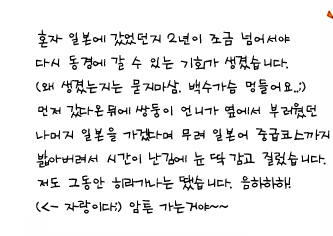 혼자 일본에 갔었던지 2년이 조금 넘어서야
다시 동경에 갈 수 있는 기회가 생겼습니다.
(왜 생겼는지는 묻지마삼. 백수가슴 멍들어요..;)
먼저 갔다온뒤에 쌍둥이 언니가 옆에서 부러웠던
나머지 일본을 가겠다며 무려 일본어 중급코스까지
밟아버려서 시간이 난김에 눈 딱 감고 질렀습니다.
저도 그동안 히라가나는 뗐습니다. 음하하하!
(<- 자랑이다;) 암튼 가는거야~~